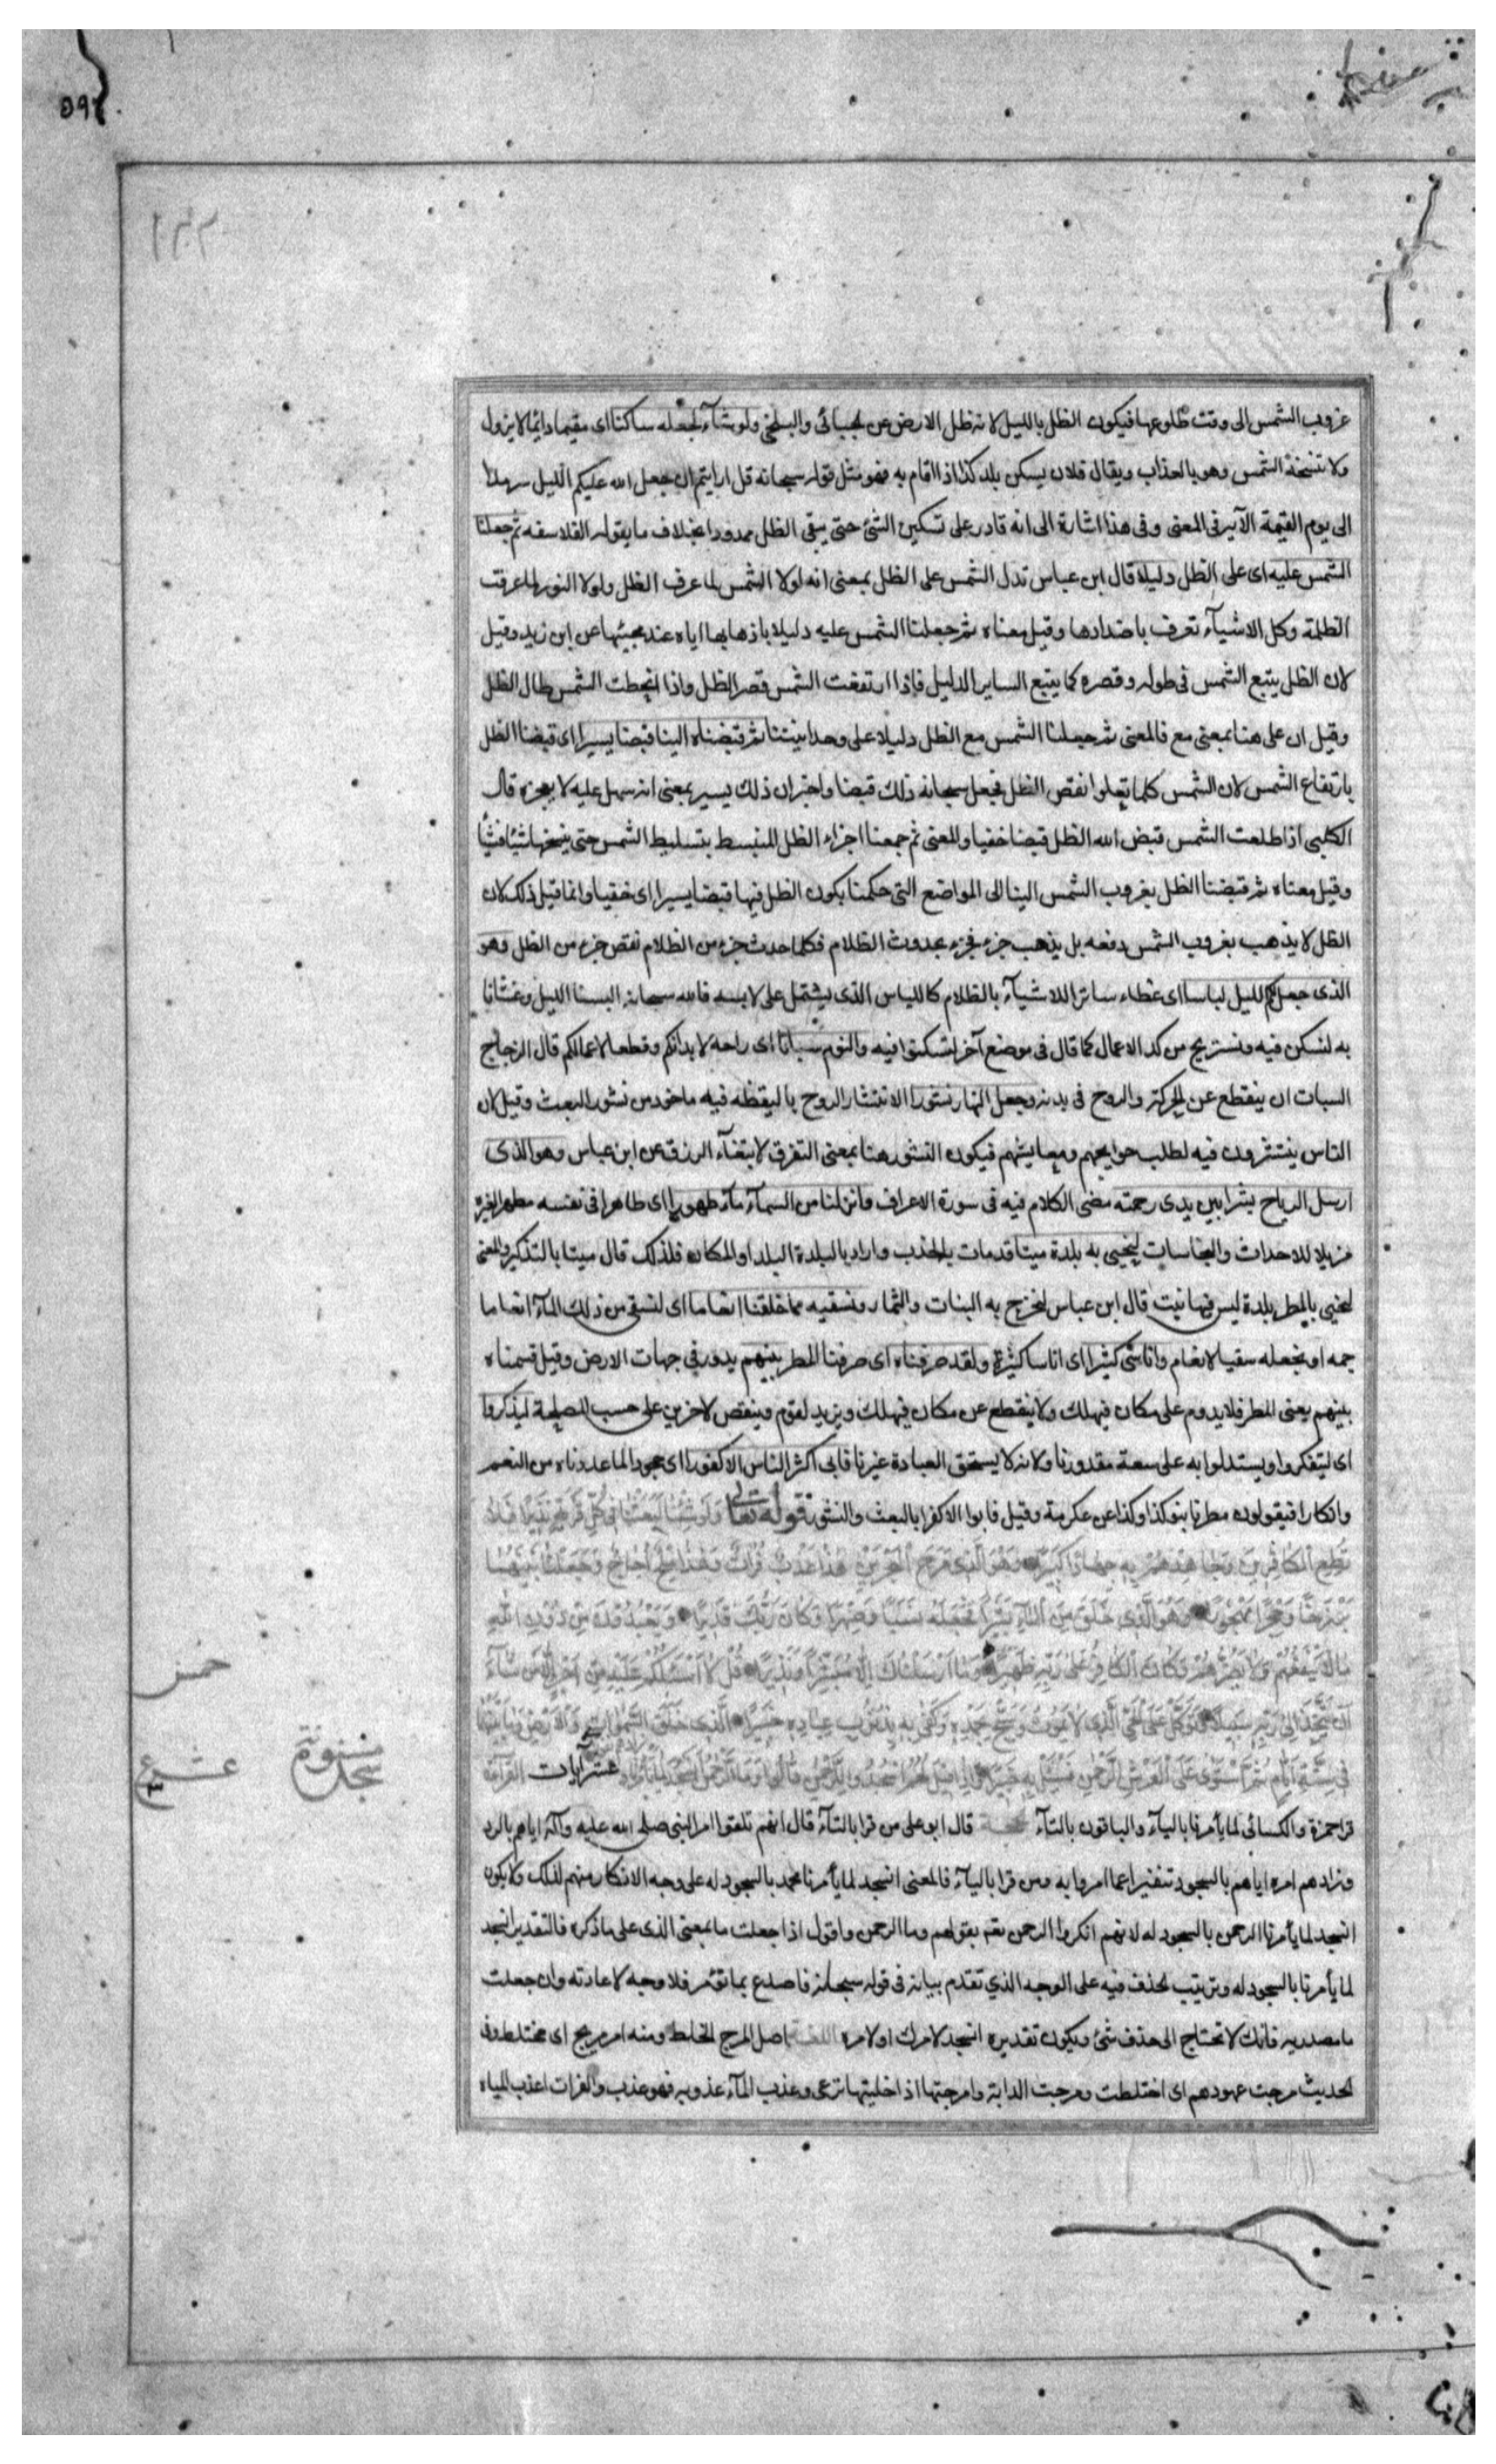 غروب الشمس الى وقت طلوعها فيكون الظل بالليل لانه ظل الارض عن الجبائى والبلخى ولو شآء لجعله ساكنا اى مقيما دايما لا يزول
ولا تنسخه الشمس وهو يا لعذاب ويقال فلان يسكن بلد كذا اذا اقام به فهو مثل قوله سبحانه قل ارايتم ان جعل الله عليكم الليل سرمدا
الى يوم القيمة الآية فى المعنى وفى هذا اشارة الى انه قادر على تسكين الشئ حتى يبقى الظل ممدودا بخلاف ما يقوله الفلاسفه ثم جعلنا
الشمس عليه اى على الظل دليلا قال ابن عباس تدل الشمس على الظل بمعنى انه لولا الشمس لما عرف الظل ولولا النور لما عرفت
الظلمة وكل الاشيآء تعرف باضدادها وقيل معناه ثم جعلنا الشمس عليه دليلا باذهابها اياه عند مجيئها عن ابن زيد وقيل
لان الظل يتبع الشمس فى طوله وقصره كما يتبع الساير الدليل فاذا ارتفعت الشمس قصر الظل واذا انحطت الشمس طال الظل
وقيل ان على هنا بمعنى مع فالمعنى ثم جعلنا الشمس مع الظل دليلا على وحدانيتنا ثم قبضناه الينا قبضا يسيرا اى قبضنا الظل
بارتفاع الشمس لان الشمس كلما تعلوا نقص الظل فجعل سبحانه ذلك قبضا واخبر ان ذلك يسير بمعنى انه سهل عليه لا يعجزه قال
الكلبى اذا طلعت الشمس قبض الله الظل قبضا خفيا والمعنى ثم جمعنا اجزاء الظل المنبسط بتسليط الشمس حتى ينسخها شيئا فشيأ
وقيل معناه ثم قبضنا الظل بغروب الشمس الينا الى المواضع التى حكمنا بكون الظل فيها قبضا يسيرا اى خفيا وانما قيل ذلك لان
الظل لا يذهب بغروب الشمس دفعه بل يذهب جزء فجزء بحدوث الظلام فكلما حدث جزء من الظلام نقص جزء من الظل وهو
الذى جعل لكم الليل لباسا اى غطاء ساترا للاشيآء بالظلام كاللباس الذى يشتمل على لابسه فالله سبحانه البسنا الليل وغشانا
به لنسكن فيه ونستريح من كد الاعمال كما قال فى موضع آخر لتسكنوا فيه والنوم سباتا اى راحة لابدانكم وقطعا لاعمالكم قال الزجاج
السبات ان ينقطع عن الحركة والروح فى بدنه وجعل النهار نشورا لانتشار الروح باليقظه فيه ماخوذ من نشور البعث وقيل لان
الناس ينتشرون فيه لطلب حوايجهم ومعايشهم فيكون النشور هنا بمعنى التفرق لابتغآء الرزق عن ابن عباس وهو الذى
ارسل الرياح بشرا بين يدى رحمته مضى الكلام فيه فى سورة الاعراف وانزلنا من السمآء مآء طهورا اى طاهرا فى نفسه مطهرا لغيره
مزيلا للاحداث والنجاسات لنحيى به بلدة ميتا قد مات بالجذب واراد بالبلدة البلد او المكان فلذلك قال ميتا بالتذكير والمعنى
لنحيى بالمطر بلدة ليس فيها نبت قال ابن عباس لنخرج به النبات والثمار ونسقيه مما خلقنا انعاما اى لنسقى من ذلك المآء انعاما
جمه او نجعله سقيا لانعام واناسى كثيرا اى اناسا كثيرة ولقد صرفناه اى صرفنا المطر بينهم يدور فى جهات الارض وقيل قسمناه
بينهم يعنى المطر فلا يدوم على مكان فيهلك ولا ينقطع عن مكان فيهلك ويزيد لقوم وينقص لاخرين على حسب المصلحة ليذكروا
اى ليتفكروا ويستدلوا به على سعة مقدورنا ولانه لا يستحق العبادة غيرنا فابى اكثر الناس الا كفورا اى جحودا لما عددناه من النعم
وانكارا فيقولون مطرنا بنو كذا وكذا عن عكرمة وقيل فابوا الا كفرا بالبعث والنشور قوله تعالى وَلَوْ شِئْنَا لَبَعَثْنَا فِى كُلِّ قَرْيَةٍ نَذِيرًا فَلَا
تُطِعِ الْكَافِرِينَ وَجَاهِدْهُمْ بِهِ جِهَادًا كَبِيرًا وَهُوَ الَّذِى مَرَجَ الْبَحْرَيْنِ هَذَا عَذْبٌ فُرَاتٌ وَهَذَا مِلْحٌ أُجَاجٌ وَجَعَلَ بَيْنَهُمَا
بَرْزَخًا وَحِجْرًا مَحْجُورًا وَهُوَ الَّذِى خَلَقَ مِنَ الْمَآءِ بَشَرًا فَجَعَلَهُ نَسَبًا وَصِهْرًا وَكَانَ رَبُّكَ قَدِيرًا وَيَعْبُدُونَ مِنْ دُونِ اللهِ
مَا لَا يَنْفَعُهُمْ وَلَا يَضُرُّهُمْ وَكَانَ الْكَافِرُ عَلَى رَبِّهِ ظَهِيرًا وَمَا اَرْسَلْنَاكَ اِلَّا مُبَشِّرًا وَنَذِيرًا قُلْ لَا اَسْئَلُكُمْ عَلَيْهِ مِنْ اَجْرٍ اِلَّا مَنْ شَآءَ
اَنْ يَتَّخِذَ اِلَى رَبِّهِ سَبِيلًا وَتَوَكَّلْ عَلَى الْحَىِّ الَّذِى لَا يَمُوتُ وَسَبِّحْ بِحَمْدِهِ وَكَفَى بِهِ بِذُنُوبِ عِبَادِهِ خَبِيرًا الَّذِى خَلَقَ السَّمَوَاتِ وَالْاَرْضَ وَمَا بَيْنَهُمَا
فِى سِتَّةِ اَيَّامٍ ثُمَّ اسْتَوَى عَلَى الْعَرْشِ الرَّحْمَنُ فَسْئَلْ بِهِ خَبِيرًا وَاِذَا قِيلَ لَهُمُ اسْجُدُوا لِلرَّحْمَنِ قَالُوا وَمَا الرَّحْمَنُ اَنَسْجُدُ لِمَا تَأْمُرُنَا وَزَادَهُمْ نُفُورًا عشر آيات القرآءة
خمس
سجدة مسنونة
عشر ع
قرا حمزة والكسائى لما يأمرنا باليآء والباقون بالتآء الحجة قال ابو على من قرا بالتآء قال انهم تلقوا امر النبى صلى الله عليه وآله اياهم بالرد
وزادهم امره اياهم بالسجود تنفيرا عما امروا به ومن قرا باليآء فالمعنى انسجد لما يأمرنا محمد بالسجود له على وجه الانكار منهم لذلك ولا يكون
انسجد لما يأمرنا الرحمن بالسجود له لانهم انكروا الرحمن بقولهم وما الرحمن واقول اذا جعلت ما بمعنى الذى على ما ذكره فالتقدير انسجد
لما يأمرنا بالسجود له وترتيب الحذف فيه على الوجه الذي تقدم بيانه فى قوله سبحانه فاصدع بما تؤمر فلا وجه لاعادته وان جعلت
ما مصدرية فانك لا تحتاج الى حذف شئ ويكون تقديره انسجد لامرك او لامره اللغة اصل المرج الخلط ومنه امر مريج اى مختلط وفى
الحديث مرجت عهودهم اى اختلطت ومرجت الدابة وامرجتها اذا خليتها ترعى وعذب المآء عذوبه فهو عذب والفرات اعذب المياه